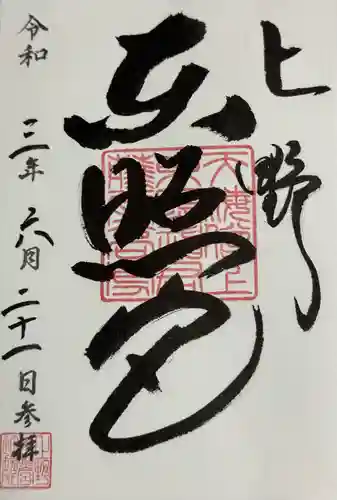 上野
東照宮
令和三年六月二十一日参拝